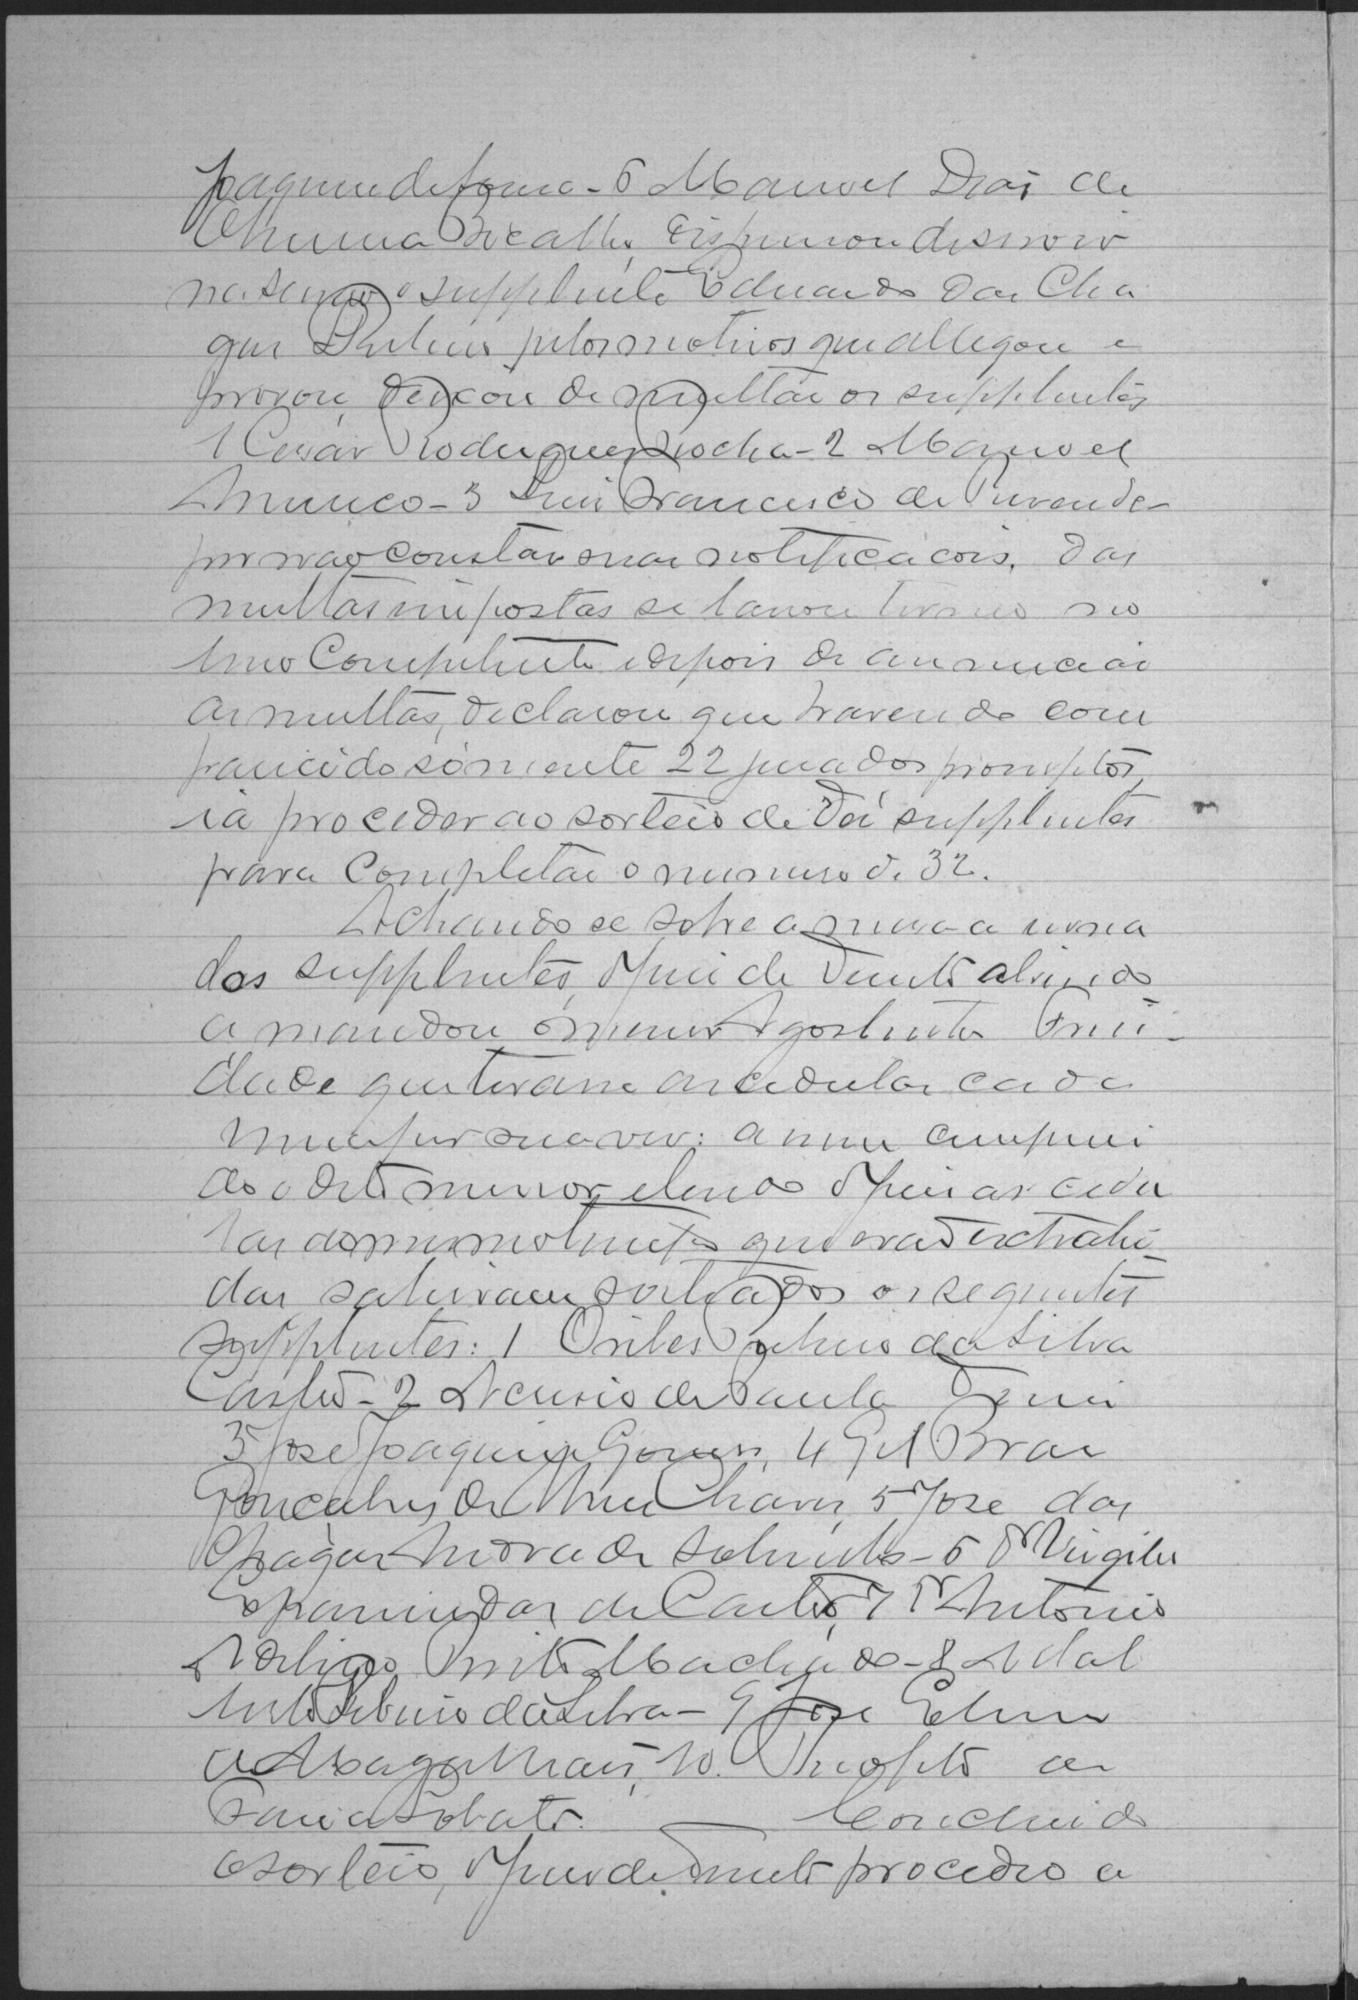 Joaquim de Souza - 6 Manoel Dias de
Oliveira Bicalho, dispensou de servir
na sessão o supplente Eduardo das Cha
gas pelos motivos que allegou e
provou, deixou de multar os supplentes
1 Cesar Rodrigues Rocha - 2 Manoel
Americo - 3 Luiz Francisco de Rezende -
por não constar suas notificacois. Das
multas impostas se lavrou termo no
livro Competente e depois de annunciar
as multas, declarou que havendo com
parecido sómente 22 jurados promptos,
ia proceder ao sorteio de dés supplentes
para Completar o numero de 32.
Achando se sobre a mesa a urna
dos supplentes, o Juiz de Direito abrindo
a mandou o menor Agostinho Trin-
dade que tirasse as cedulas cada
uma por sua vez: assim cumprin
do o dito menor, e lendo o Juiz as cedu
las ao mesmo tempo que erão extrahi
das sahiram sorteados os seguintes
supplentes: 1 Oribes da Silva
Castro - 2 Acurcio de Paula
3 José Joaquim Gomes, 4 Gil Braz
Gonçalves de Chaves, 5 José das
Chagas Andrade Sobrinho - 6 Dr Virgilio
Epaminondas de Castro, 7 Dr Antonio
Machado - 8 Adal
berto da Silva - 9 José
de Magalhães, 10. Theophilo de
Faria Lobato. Concluido
o sorteio, o Juiz de Direito procedeo a